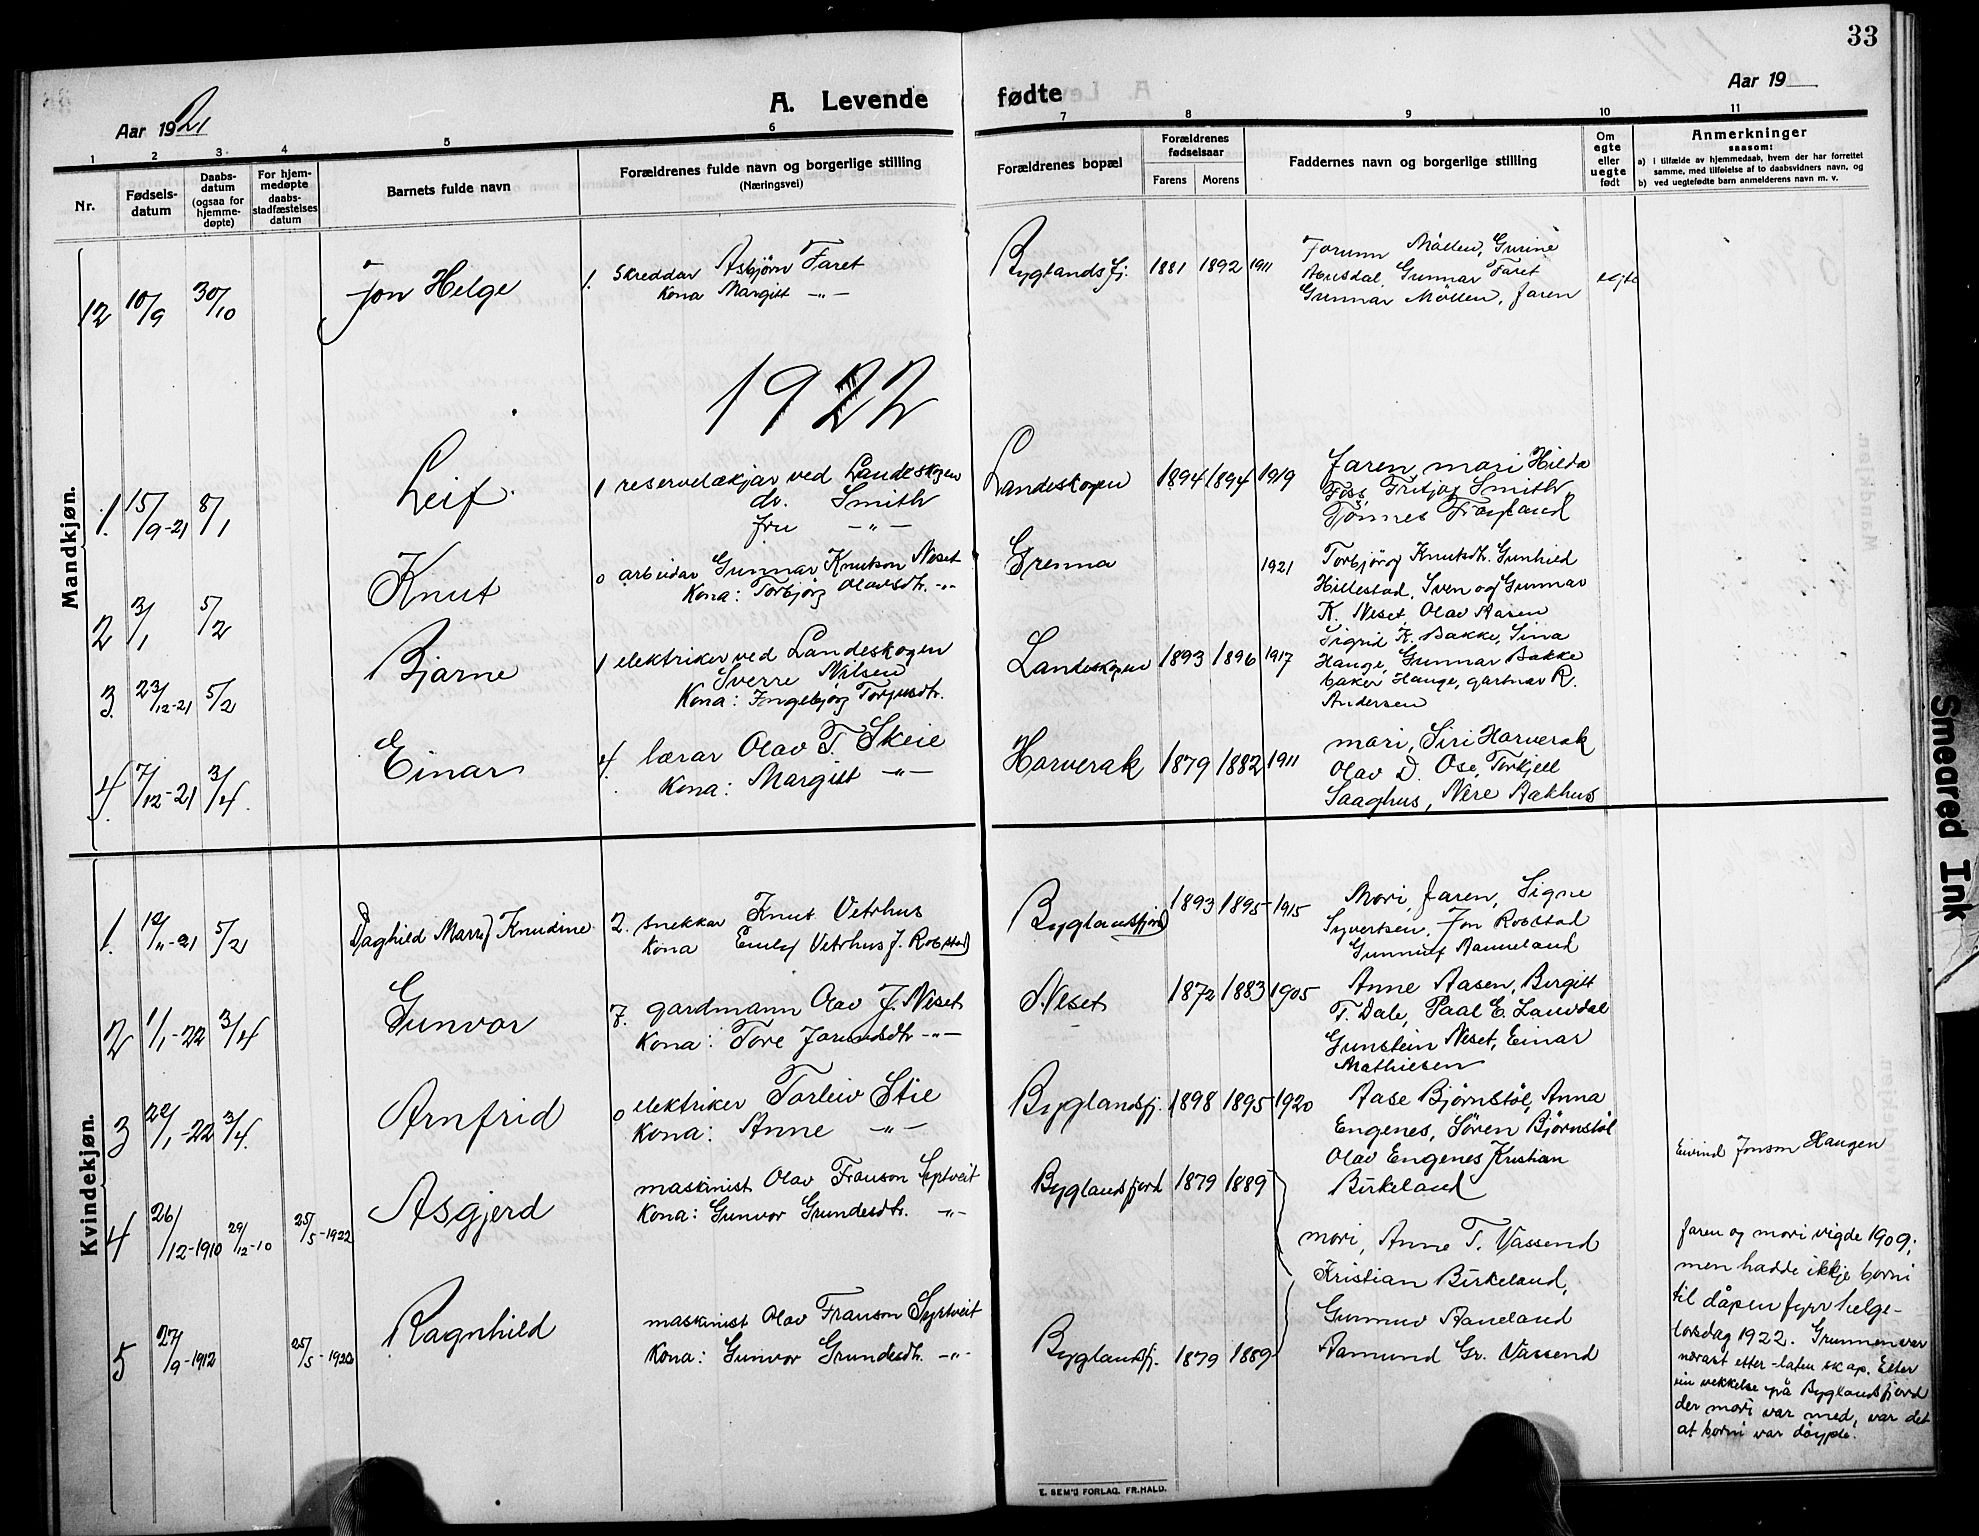 33
Aar 1921
A. Levende fødte
Aar 19
1 2 3 4 5 6 7 8 9 10 11
Nr.
Fødsels-
datum
Daabs-
datum
(ogsaa for
hjemme-
døpte)
For hjem-
medøpte
daabs-
stadfæstelses
datum
Barnets fulde navn
Forældrenes fulde navn og borgerlige stilling
(Næringsvei)
Forældrenes bopæl
Forældrenes
fødselsaar
Farens Morens
Faddernes navn og borgerlige stilling
Om
egte
eller
uegte
født
Anmerkninger
saasom:
a) i tilfælde av hjemmedaab, hvem der har forrettet
samme, med tilføielse af to daabsvidners navn, og
b) ved uegtefødte barn anmelderens navn m. v.
Mandkjøn.
12 10/9 30/10 Jon Helge
1. Skreddar Asbjørn Faret
Kona Margit -"-
Byglandsfj. 1881 1892 1911
Jorunn Möllen, Gurine
Gunnar Faret
Gunnar Möllen, faren
egte
1922
1. 15/9-21 8/1 Leif
1 reservelækjar ved Landeskogen
dr. Smith
fru -"-
Landeskogen 1894 1894 1919
faren, mori Hilda
Foss, Fritjof Smith,
Tønnes Frøyland
2 3/1 5/2 Knut
0 arbeidar Gunnar Knutson Neset
Kona: Torbjørg Olavsdtr. -"-
Grenna 1921
Torbjörg Knutsdtr. Gunhild
Hillestad, Sven og Gunnar
K. Neset, Olav Aasen
3. 23/12-21 5/2 Bjarne
1 elektriker ved Landeskogen
Sverre Nilsen
Kona: Ingebjørg Torjusdtr.
Landeskogen 1893 1896 1917
Sigrid K. Bakke, Sina
Hauge, Gunnar Bakke
baker Hauge, gartnar R.
Andersen
4. 7/12-21 3/4. Einar
4. lærar Olav T. Skeie
Kona: Margit -"-
Horverak 1879 1882 1911
mori, Siri Horverak
Olav D. Ose, Torkjell
Saaghus, Nere Aakhus
Kvindekjøn.
1. 12/11-21 5/2 Daghild Marry Knudine
2. snekkar Knut Vetrhus
Kona Emely Vetrhus f. Robstad
Byglandsfjord 1893 1895 1915
Mori, faren, Signe
Syvertsen, Jon Robstad
Gunnuf Aaneland
2 1/1-22 3/4 Gunvor
7. gardmann Olav J. Neset
Kona: Tore Jorundsdtr -"-
Neset 1872 1883 1905
Anne Aasen, Birgit
T. Dale, Paal E. Lauvdal
Gunstein Neset, Einar
Mathiesen
3 22/1-22 3/4. Arnfrid
0 elektriker Torleiv Stie
Kona: Anne -"-
Byglandsfj. 1898 1895 1920
Aase Bjørnstöl, Anna
Engenes, Sören Björnstöl
Olav Engenes Kristian
Birkeland
Eivind Jonson Haugen
4 26/12-1910 29/12-10 25/5-1922 Asgjerd
maskinist Olav Franson Syrtveit
Kona: Gunvor Grundesdtr. -"-
Byglandsfjord 1879 1889
mori, Anne T. Vassend
Kristian Birkeland,
Gunnuv Aaneland
Aamund Gr. Vassend
5 27/9-1912 25/5-1922 Ragnhild
maskinist Olav Franson Syrtveit
Kona: Gunvor Grundesdtr. -"-
Byglandsfj. 1879 1889
faren og mori vigde 1909;
men hadde ikkje borni
til dåpen fyrr helge-
torsdag 1922. Grunnen var
nærast etter-laten skap. Etter
ein vekkelse på Byglandsfjord
der mori var med, var det
at borni var döypte.
E. SEM'S FORLAG, FR.HALD.
Smeared Ink